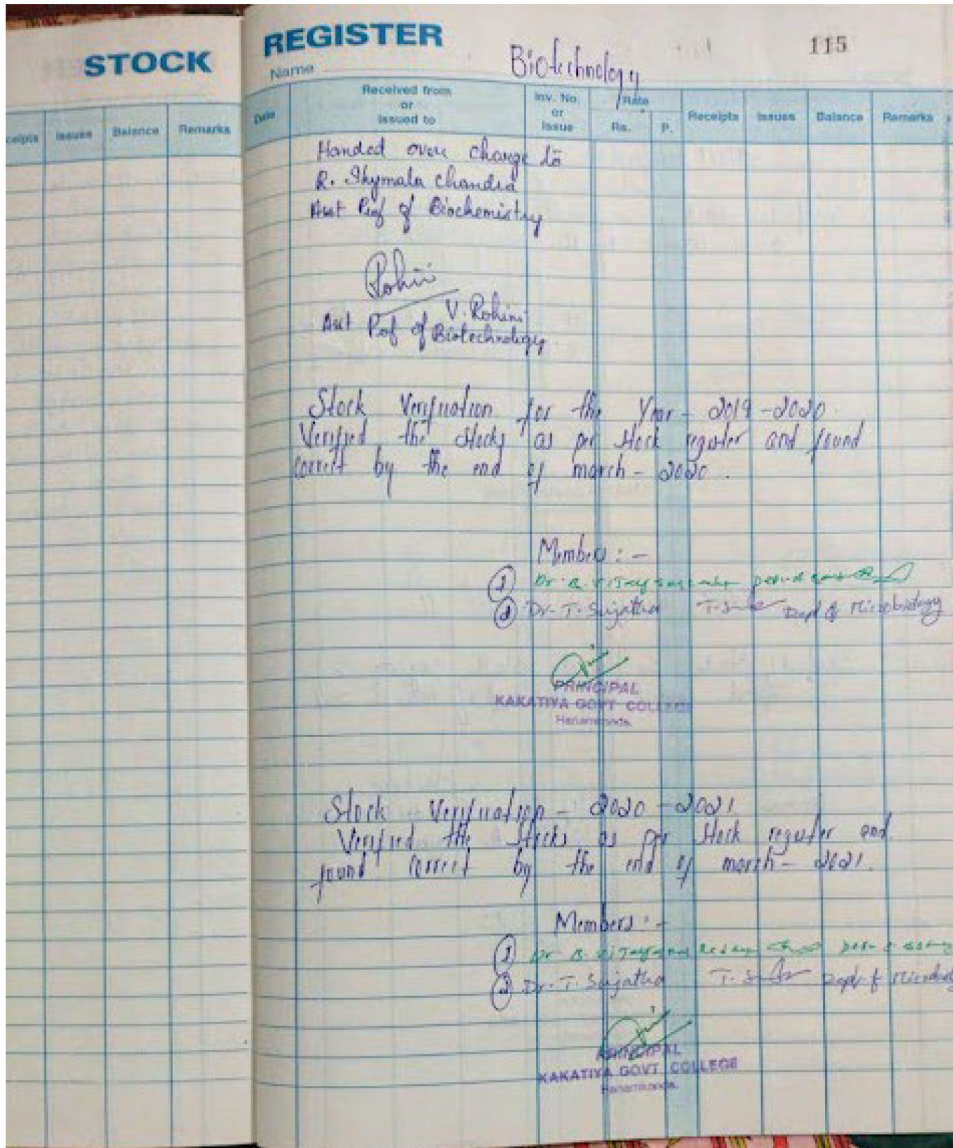 STOCK REGISTER
115
Name Biotechnology
ceipts Issues Balance Remarks
Date Received from or Issued to Inv. No. or Issue Rate Rs. P. Receipts Issues Balance Remarks
Handed over charge to
R. Shymala Chandra
Asst Prof of Biochemistry
Rohini
V. Rohini
Asst Prof of Biotechnology
Stock Verification for the Year - 2019-2020
Verified the stocks as per stock register and found
correct by the end of march - 2020.
Members : -
① Dr. B.
② Dr. T. Sujatha Dept of Microbiology
PRINCIPAL
KAKATIYA GOVT COLLEGE
Hanamkonda.
Stock Verification - 2020 - 2021
Verified the stocks as per stock register and
found correct by the end of march - 2021.
Members : -
① Dr. B.
② Dr. T. Sujatha Dept of
PRINCIPAL
KAKATIYA GOVT COLLEGE
Hanamkonda.